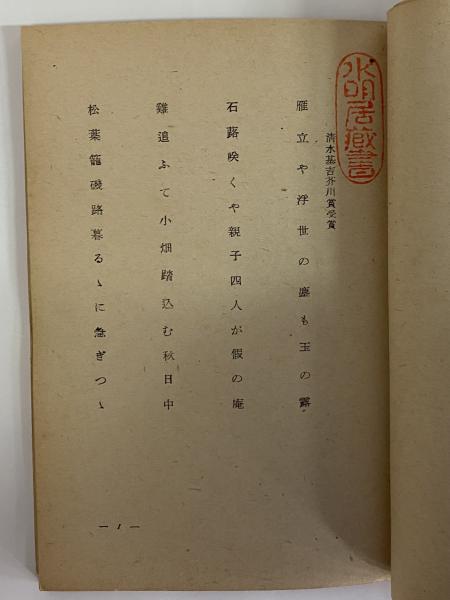 水明居蔵書
清水基吉芥川賞受賞
雁立や浮世の塵も玉の露
石蕗咲くや親子四人が假の庵
雞追ふて小畑踏込む秋日中
松葉籠磯路暮るゝに急ぎつゝ
— 1 —